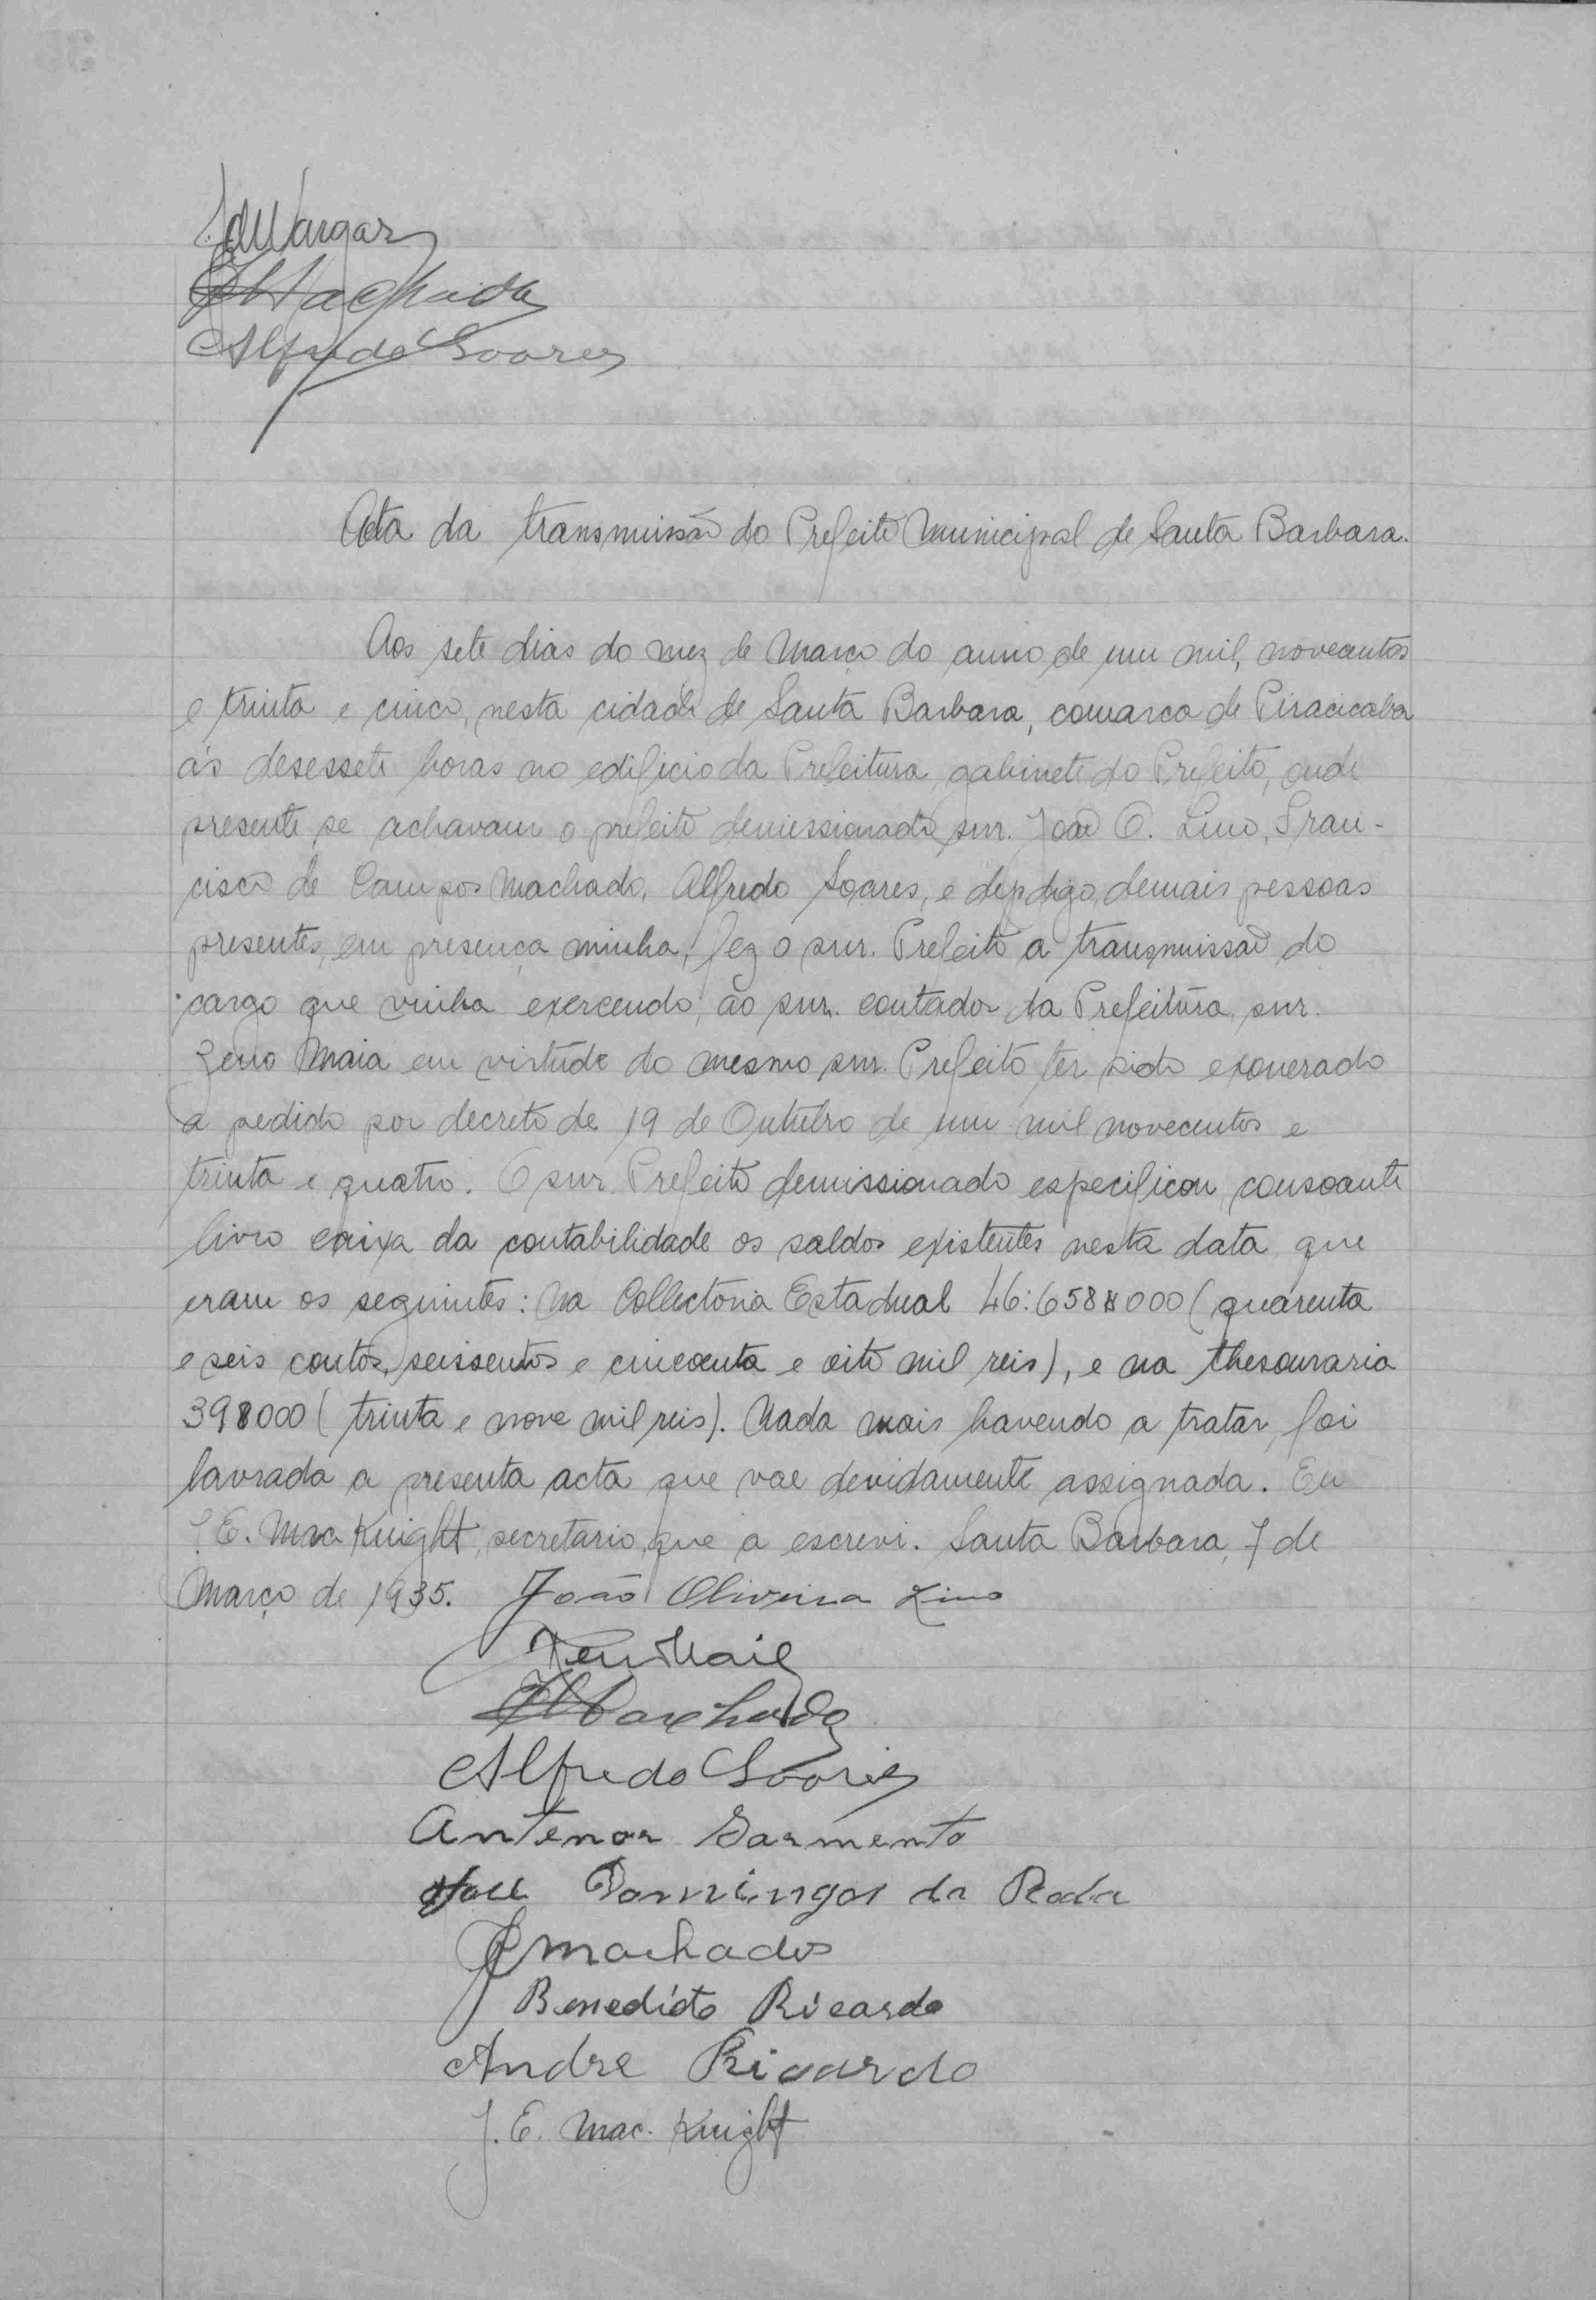 Machado
Alfredo Soares
Acta da transmissão do Prefeito Municipal de Santa Barbara.
Aos sete dias do mez de Março do anno de um mil, novecentos
e trinta e cinco, nesta cidade de Santa Barbara, comarca de Piracicaba
ás desessete horas no edificio da Prefeitura, gabinete do Prefeito, onde
presente se achavam o prefeito demissionado snr. João O. Lino, Fran-
cisco de Campos Machado, Alfredo Soares, e digo, demais pessoas
presentes, em presença minha, fez o snr. Prefeito a transmissão do
cargo que vinha exercendo, ao snr. contador da Prefeitura, snr.
Zeno Maia em virtude do mesmo snr. Prefeito ter sido exonerado
a pedido por decreto de 19 de Outubro de um mil novecentos e
trinta e quatro. O snr. Prefeito demissionado especificou, consoante
livro caixa da contabilidade os saldos existentes nesta data que
eram os seguintes: na Collectoria Estadual 46:658$000 (quarenta
e seis contos, seissentos e cincoenta e oito mil reis), e na thesouraria
39$000 (trinta e nove mil reis). Nada mais havendo a tratar, foi
lavrada a presenta acta que vae devidamente assignada. Eu
J. E. Mac Knight, secretario, que a escrevi. Santa Barbara, 7 de
Março de 1935. João Oliveira Lino
Zeno Maia
Machado
Alfredo Soares
Antenor Sarmento
José Domingos da Roda
Machado
Benedicto Ricardo
Andre Ricardo
J. E. Mac. Knight